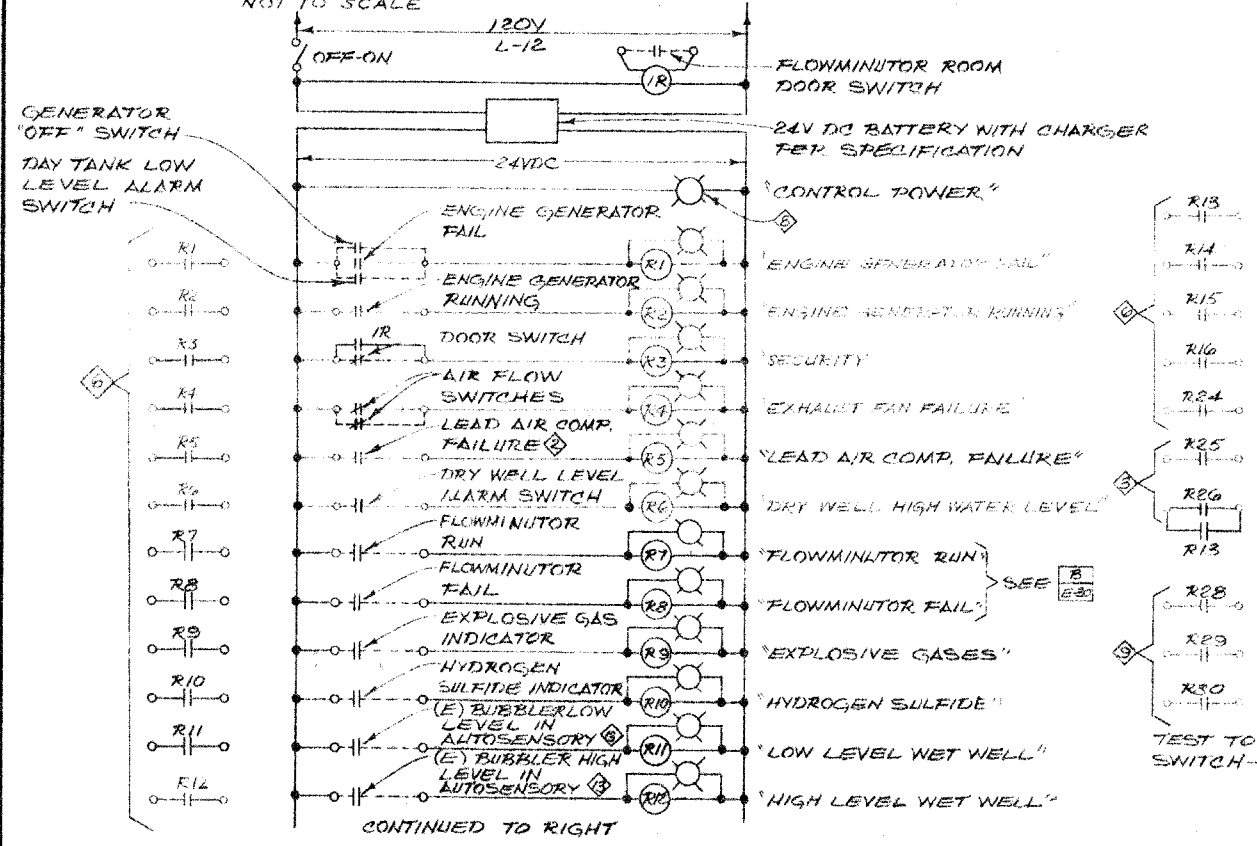 NOT TO SCALE
120V
L-12
OFF-ON
1R
FLOWMINUTOR ROOM
DOOR SWITCH
GENERATOR
"OFF" SWITCH
DAY TANK LOW
LEVEL ALARM
SWITCH
24V DC BATTERY WITH CHARGER
PER SPECIFICATION
24VDC
"CONTROL POWER"
ENGINE GENERATOR
FAIL
R1
R1
"ENGINE GENERATOR FAIL"
ENGINE GENERATOR
RUNNING
R2
R2
"ENGINE GENERATOR RUNNING"
R3
1R
DOOR SWITCH
R3
"SECURITY
R4
AIR FLOW
SWITCHES
R4
"EXHAUST FAN FAILURE"
R5
LEAD AIR COMP.
FAILURE 2
R5
"LEAD AIR COMP. FAILURE"
R6
DRY WELL LEVEL
ALARM SWITCH
R6
"DRY WELL HIGH WATER LEVEL"
6
R7
FLOWMINUTOR
RUN
R7
"FLOWMINUTOR RUN"
R8
FLOWMINUTOR
FAIL
R8
"FLOWMINUTOR FAIL"
SEE B
E-30
R9
EXPLOSIVE GAS
INDICATOR
R9
"EXPLOSIVE GASES"
R10
HYDROGEN
SULFIDE INDICATOR
R10
"HYDROGEN SULFIDE"
R11
(E) BUBBLER LOW
LEVEL IN
AUTOSENSORY
R11
"LOW LEVEL WET WELL"
R12
(E) BUBBLER HIGH
LEVEL IN
AUTOSENSORY 13
R12
"HIGH LEVEL WET WELL"
CONTINUED TO RIGHT
R13
R14
6
R15
R16
R24
R25
3
R26
R13
R28
9
R29
R30
TEST TO
SWITCH